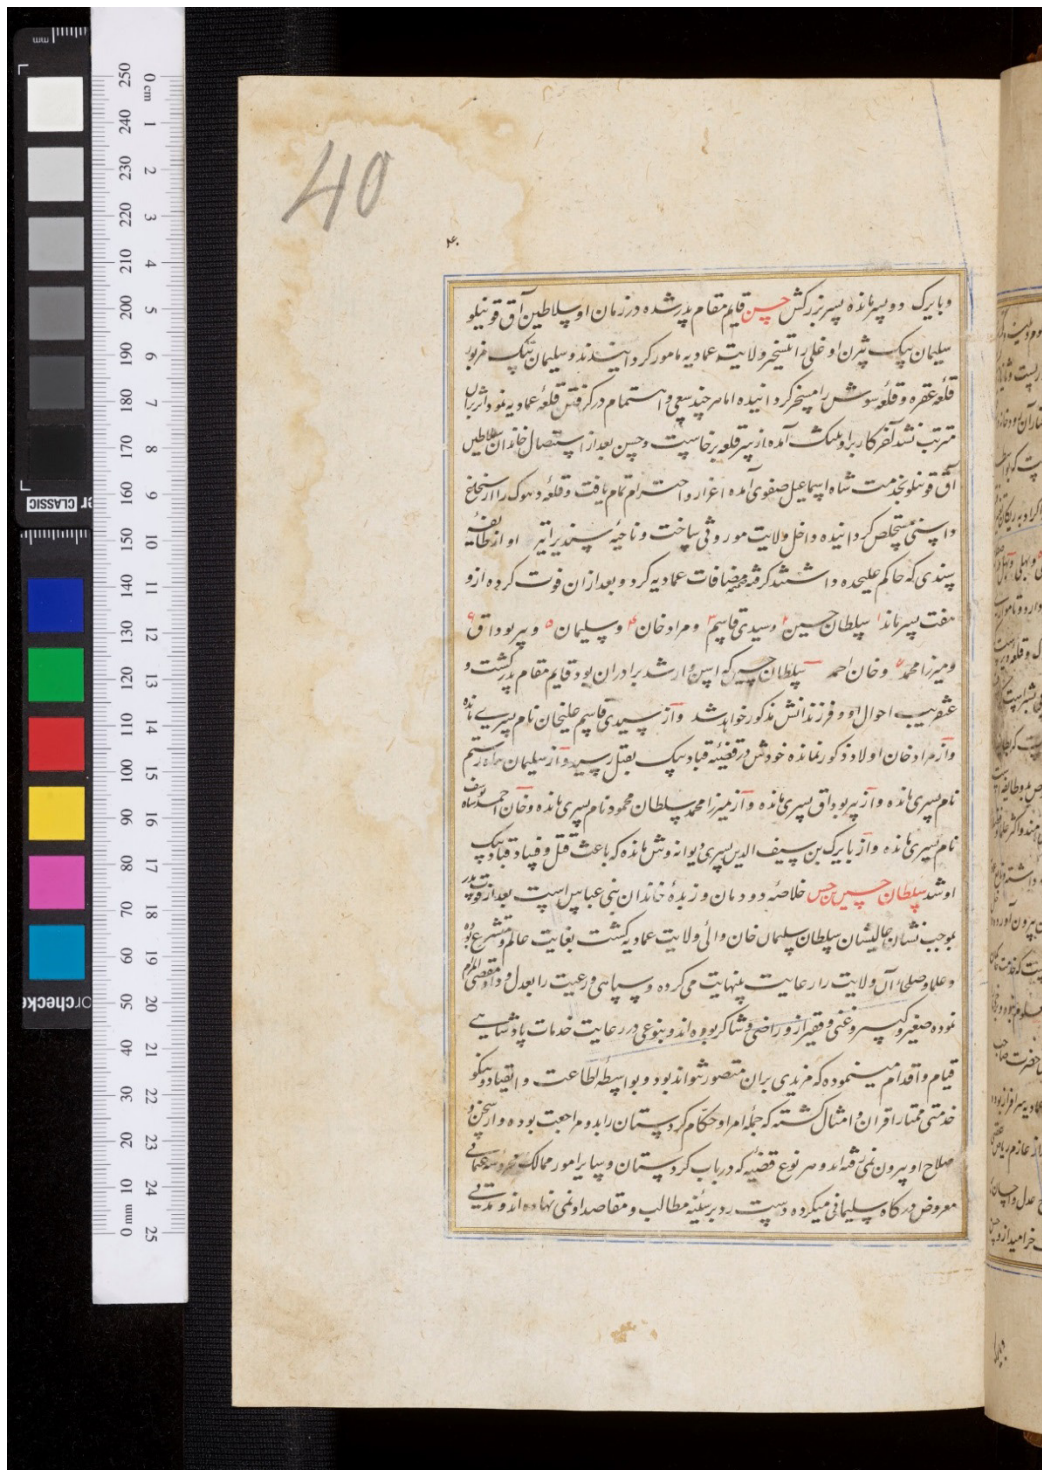 40
۴۰
و بایرک دو پسر مانده پسر بزرگش حسن قایم مقام پدر شده در زمان او سلاطین آق قوینلو
سلیمان بیک بیژن اوغلی را بتسخیر ولایت عمادیه مامور کردانیدند و سلیمان بیک مزبور
قلعهٔ عقره و قلعهٔ سوش را مسخر کردانیده اما هر چند سعی و اهتمام در کرفتن قلعهٔ عمادیه نمود اثر بران
مترتب نشد آخر کار برو تنک آمده از سر قلعه برخاست و حسن بعد از استیصال خاندان سلاطین
آق قوینلو بخدمت شاه اسماعیل صفوی آمده اعزاز و احترام تمام یافت و قلعهٔ دهوک را از
داسنی مستخلص کردانیده داخل ولایت موروثی ساخت و ناحیهٔ سندیرانیز او از طایفهٔ
سندی که حاکم علیحده داشتند کرفته مضافات عمادیه کرد و بعد ازان فوت کرده ازو
هفت پسر ماند ۱ سلطان حسین ۲ و سیدی قاسم ۳ و مراد خان ۴ و سلیمان ۵ و پیر بوداق ۶
و میرزا محمد ۷ و خان احمد سلطان حسین که اسن و ارشد برادران بود قایم مقام پدر کشت و
عنقریب احوال او و فرزندانش مذکور خواهد شد و از سیدی قاسم علیخان نام پسری مانده
و از مراد خان اولاد ذکور نمانده خودش در قضیهٔ قباد بیک بقتل رسید و از سلیمان شاه رستم
نام پسری مانده و از پیر بوداق پسری مانده و از میرزا محمد سلطان محمود نام پسری مانده و خان احمد شاه یوسف
نام پسری مانده و از بایرک بن سیف الدین پسری دیوانه وش مانده که باعث قتل و فساد قباد بیک
او شد سلطان حسین بن حسن خلاصهٔ دودمان و زبدهٔ خاندان بنی عباس است بعد از فوت پدر
بموجب نشان عالیشان سلطان سلیمان خان والی ولایت عمادیه کشت بغایت عالم و متشرع بوده
و علما و صلحای آن ولایت را رعایت بینهایت می کرده و سپاهی و رعیت را بعدل و داد مقضی المرام
نموده صغیر و کبیر و غنی و فقیر ازو راضی و شاکر بوده اند و بنوعی در رعایت خدمات پادشاهی
قیام و اقدام مینموده که مزیدی بران متصور نتواند بود و بواسطهٔ اطاعت و انقیاد و نیکو
خدمتی ممتاز اقران و امثال کشته که جملهٔ امرا و حکام کردستان را بدو مراجعت بوده و از سخن و
صلاح او بیرون نمی رفته اند و هر نوع قضیهٔ که در باب کردستان و سایر امور ممالک محروسهٔ عثمانی
معروض درکاه سلیمانی میکرده دست رد بر سینهٔ مطالب و مقاصد او نمی نهاده اند و مدتی